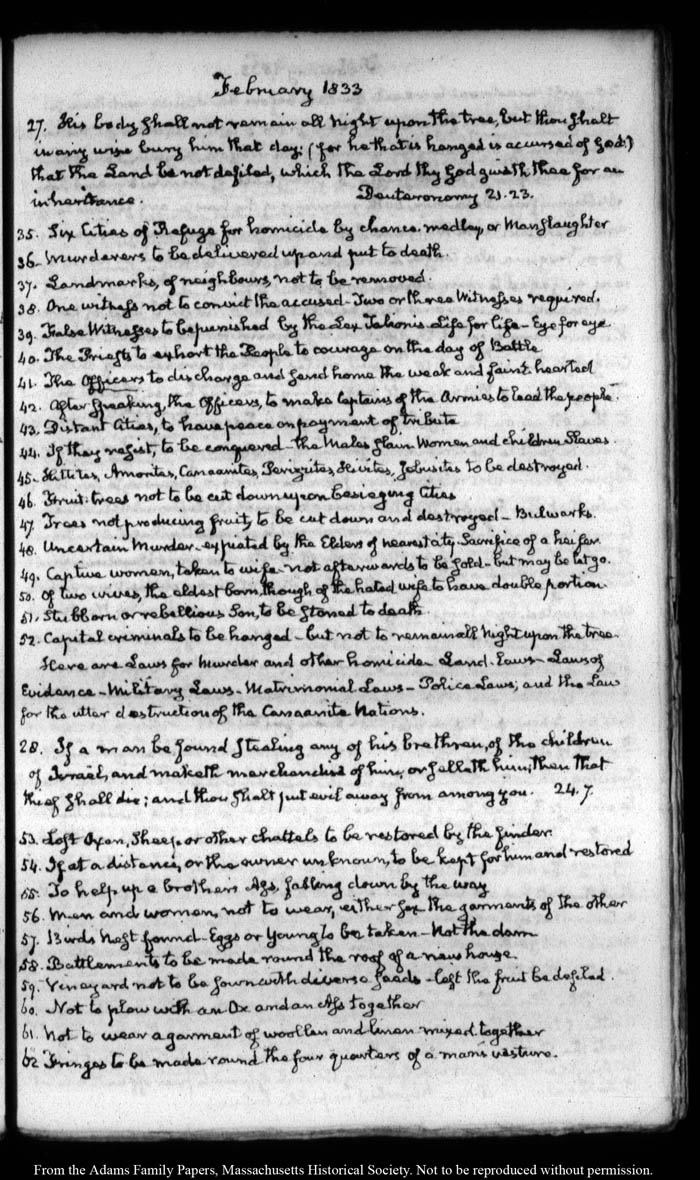 February 1833
27. His body shall not remain all night upon the tree, but thou shalt
in any wise bury him that day: (for he that is hanged is accursed of God:)
that the Land be not defiled, which the Lord thy God giveth thee for an
inheritance. Deuteronomy 21.23.
35. Six Cities of Refuge for homicide by chance-medley, or Manslaughter
36. Murderers to be delivered up and put to death.
37. Landmarks, of neighbours, not to be removed.
38. One witness not to convict the accused - Two or three Witnesses required.
39. False Witnesses to be punished by the Lex Talionis Life for life - Eye for eye
40. The Priests to exhort the People to courage on the day of Battle
41. The Officers to discharge and send home the weak and faint hearted
42. After speaking, the Officers, to make Captains of the Armies to lead the people.
43. Distant Cities, to have peace on payment of tribute
44. If they resist, to be conquered - the Males slain - Women and children Slaves.
45. Hittites, Amorites, Canaanites, Perizzites, Hivites, Jebusites to be destroyed.
46. Fruit-trees not to be cut down upon besieging Cities
47. Trees not producing fruit, to be cut down and destroyed - Bulwarks.
48. Uncertain Murder - expiated by the Elders of nearest City - Sacrifice of a heifer
49. Captive women, taken to wife - not afterwards to be sold - but may be let go.
50. Of two wives, the eldest born, though of the hated wife to have double portion
51. Stubborn or rebellious Son, to be stoned to death.
52. Capital criminals to be hanged - but not to remain all night upon the tree.
Here are Laws for murder and other homicide - Land-Laws - Laws of
Evidence - Military Laws - Matrimonial Laws - Police Laws; and the Law
for the utter destruction of the Canaanite Nations.
28. If a man be found stealing any of his brethren, of the children
of Israel, and maketh merchandise of him, or selleth him; then that
thief shall die; and thou shalt put evil away from among you. 24.7.
53. Lost Oxen, Sheep or other chattels to be restored by the finder
54. If at a distance, or the owner unknown, to be kept for him and restored
55. To help up a brother's Ass, falling down by the way
56. Men and women, not to wear, either sex the garments of the other
57. Birds nest found - Eggs or Young to be taken - Not the dam
58. Battlements to be made round the roof of a new house.
59. Vineyard not to be sown with diverse seeds - lest the fruit be defiled.
60. Not to plow with an Ox and an Ass together
61. Not to wear a garment of woollen and linen mixed together
62 Fringes to be made round the four quarters of a man's vesture.
From the Adams Family Papers, Massachusetts Historical Society. Not to be reproduced without permission.